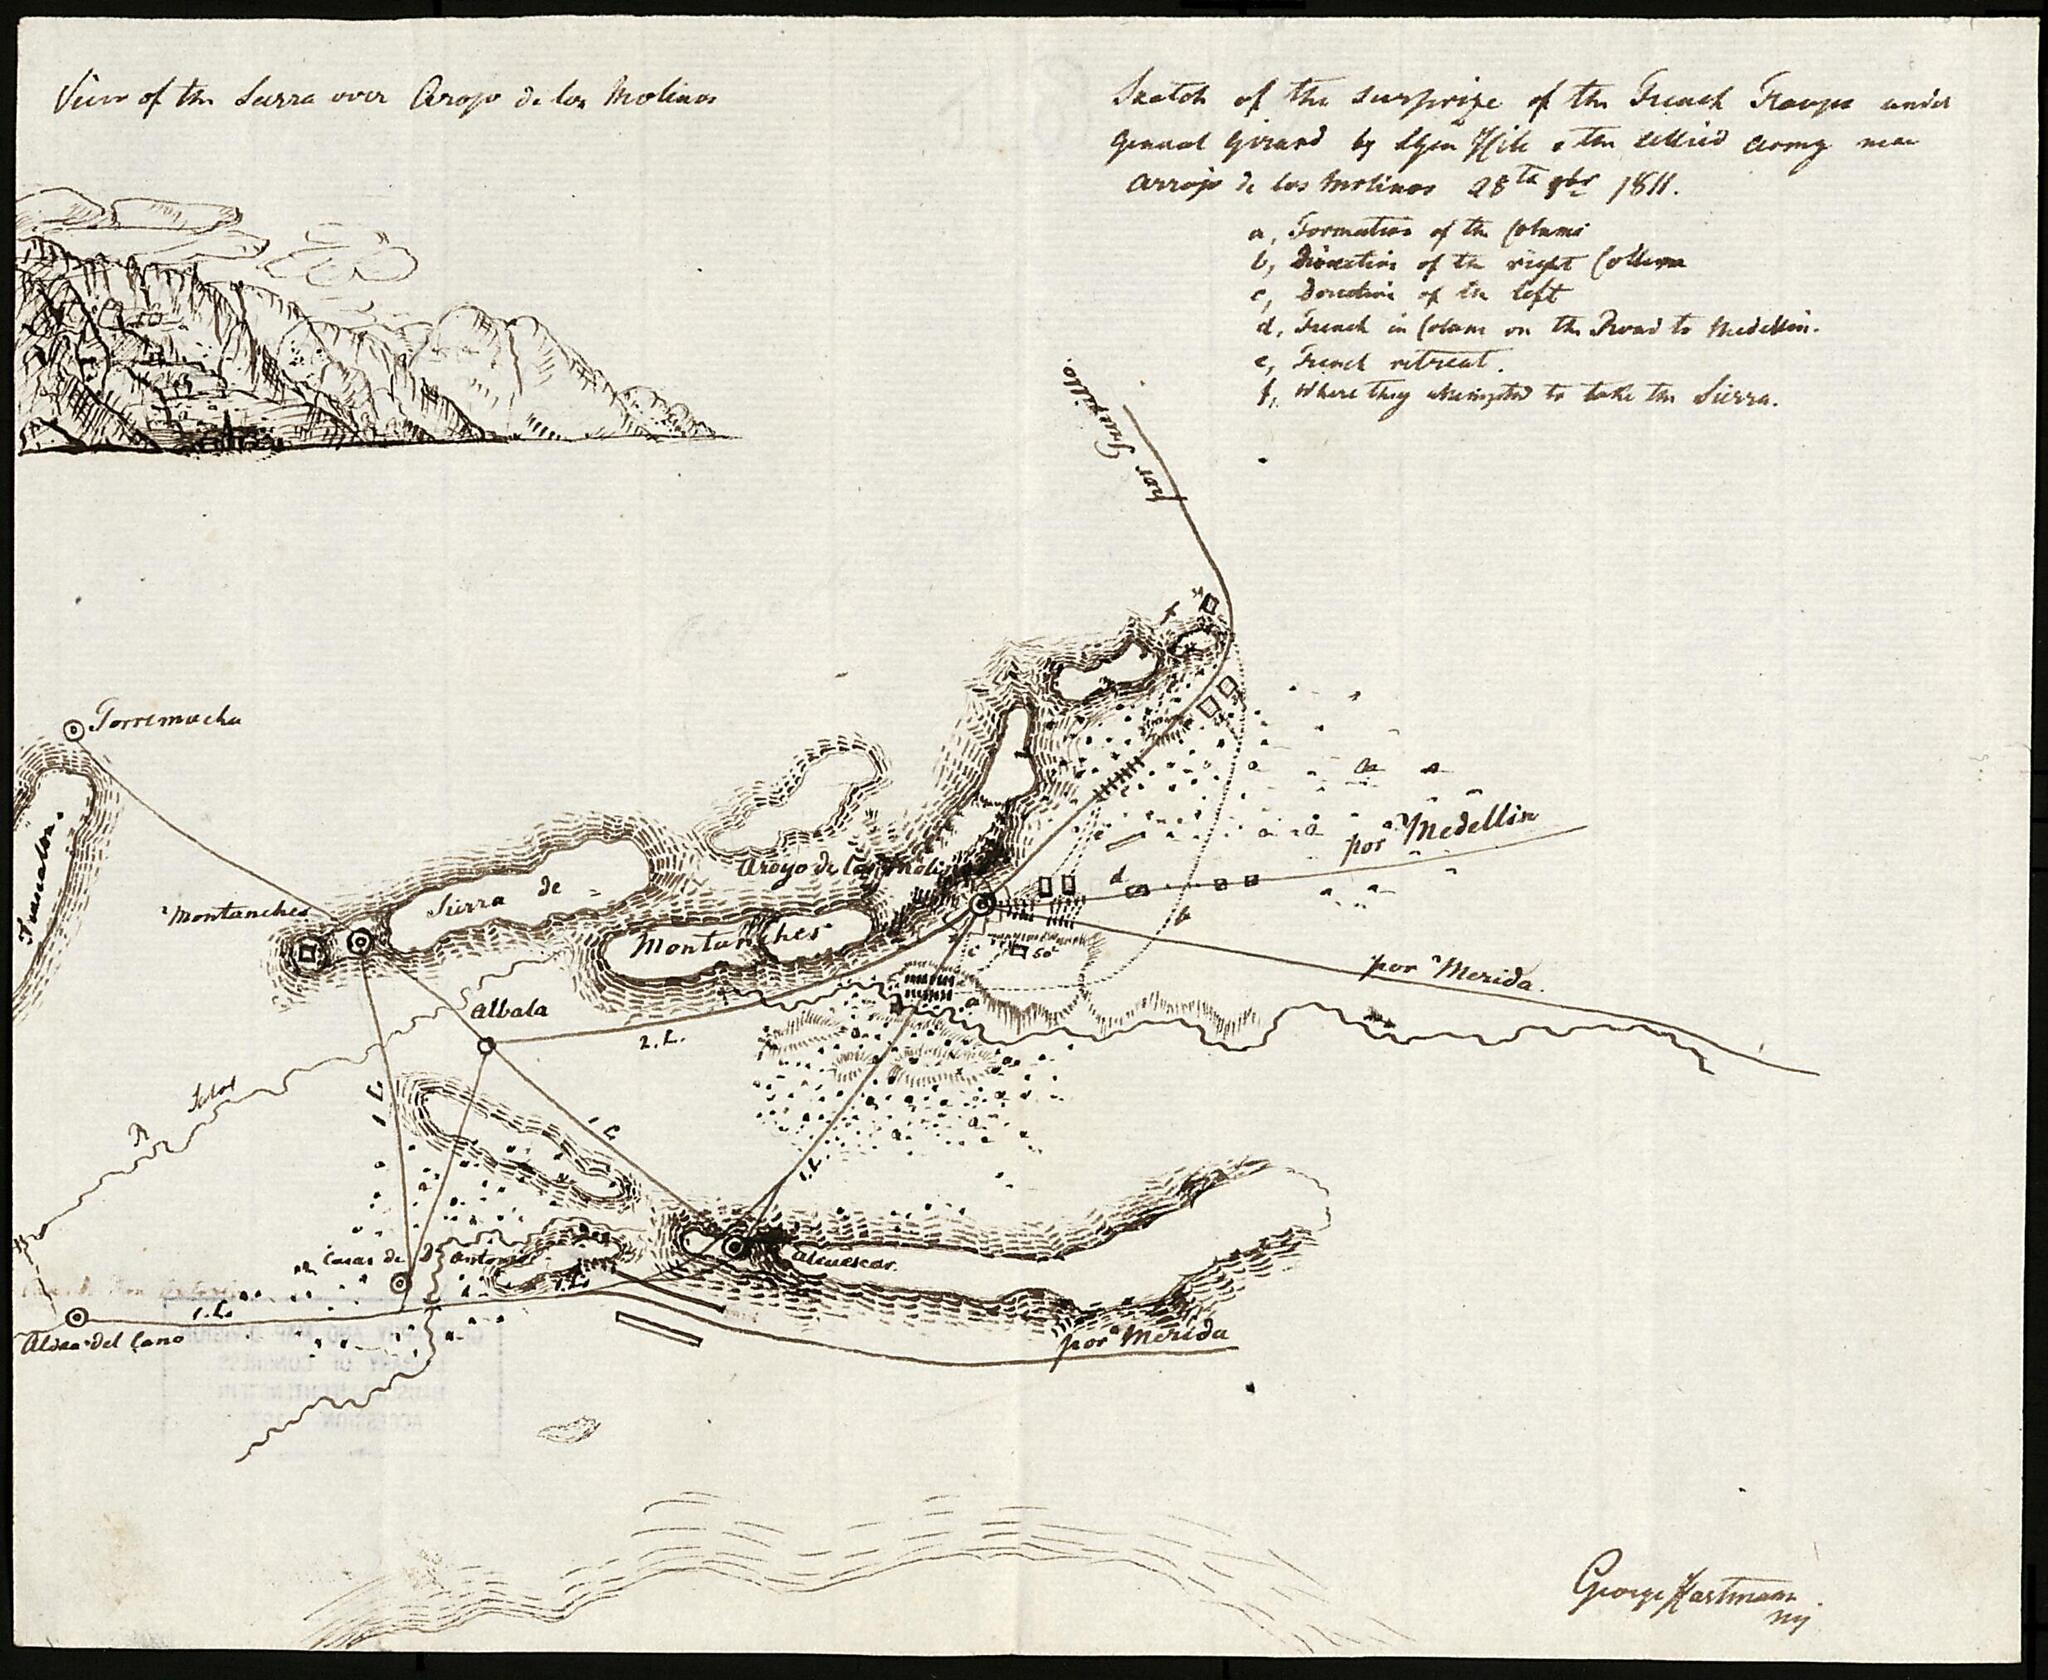 View of the Sierra over Aroyo de los Molinos
Sketch of the surprize of the French Troops under
General Girard by LtGen Hill & the allied army near
Arrojo de los Molinos 28th 8br 1811.
a, Formation of the Colums
b, Direction of the right Collum
c, Direction of the left
d, French in Colum on the Road to Medellin.
e, French retreat.
f, Where they attempted to take the Sierra.
por Trugillo
f
Torremocha
por a Medellin
Aroyo de los Moli
d
e
Montanches
Sierra de
Montanches
b
c
50
por a Merida.
Albala
2. L.
R Salor
1 L.
1 L.
1. L.
Casas de Dn Antonio
Alcuescar.
1. L.
1. L.
Aldea del Cano
por a Merida
George Hartmann